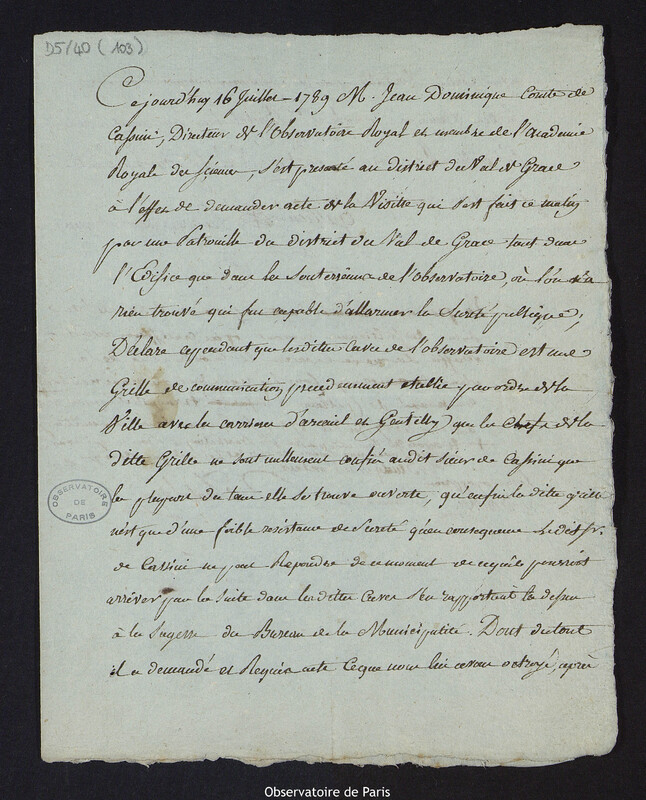 D5/40 (103)
Cejourd'huy 16 Juillet 1789 M. Jean Dominique Comte de
Cassini, Directeur de l'Observatoire Royal et membre de l'academie
Royale des Sciences, s'est presenté au district du Val de Grace
à l'effet de demander acte de la Visitte qui s'est fait ce matin
par une Patrouille du district du Val de Grace tant dans
l'Edifice que dans les Souterreins de l'Observatoire, où l'on n'a
rien trouvé qui fut capable d'allarmer la Sureté publique;
Déclare cependant que lesdittes Caves de l'observatoire est une
Grille de communication precedemment etablie par ordre de la
Ville avec les carrieres d'arceuil et Gentilly, que les Clefs de la
ditte Grille ne sont nullement confiés audit sieur de Cassini que
la plupart du tems elle se trouve ouverte, qu'enfin la ditte grille
n'est que d'une foible resistance de Sureté qu'en consequence Ledit Sr.
de Cassini ne peut Repondre de ce moment de ce qu'il pourroit
arriver par la Suite dans lesdittes Caves S'en rapportant la dessus
à la Sagesse du Bureau de la Municipalité. Dont du tout
il a demandé et Requis acte Ce que nous lui avons octroyé, après
OBSERVATOIRE
DE
PARIS
Observatoire de Paris